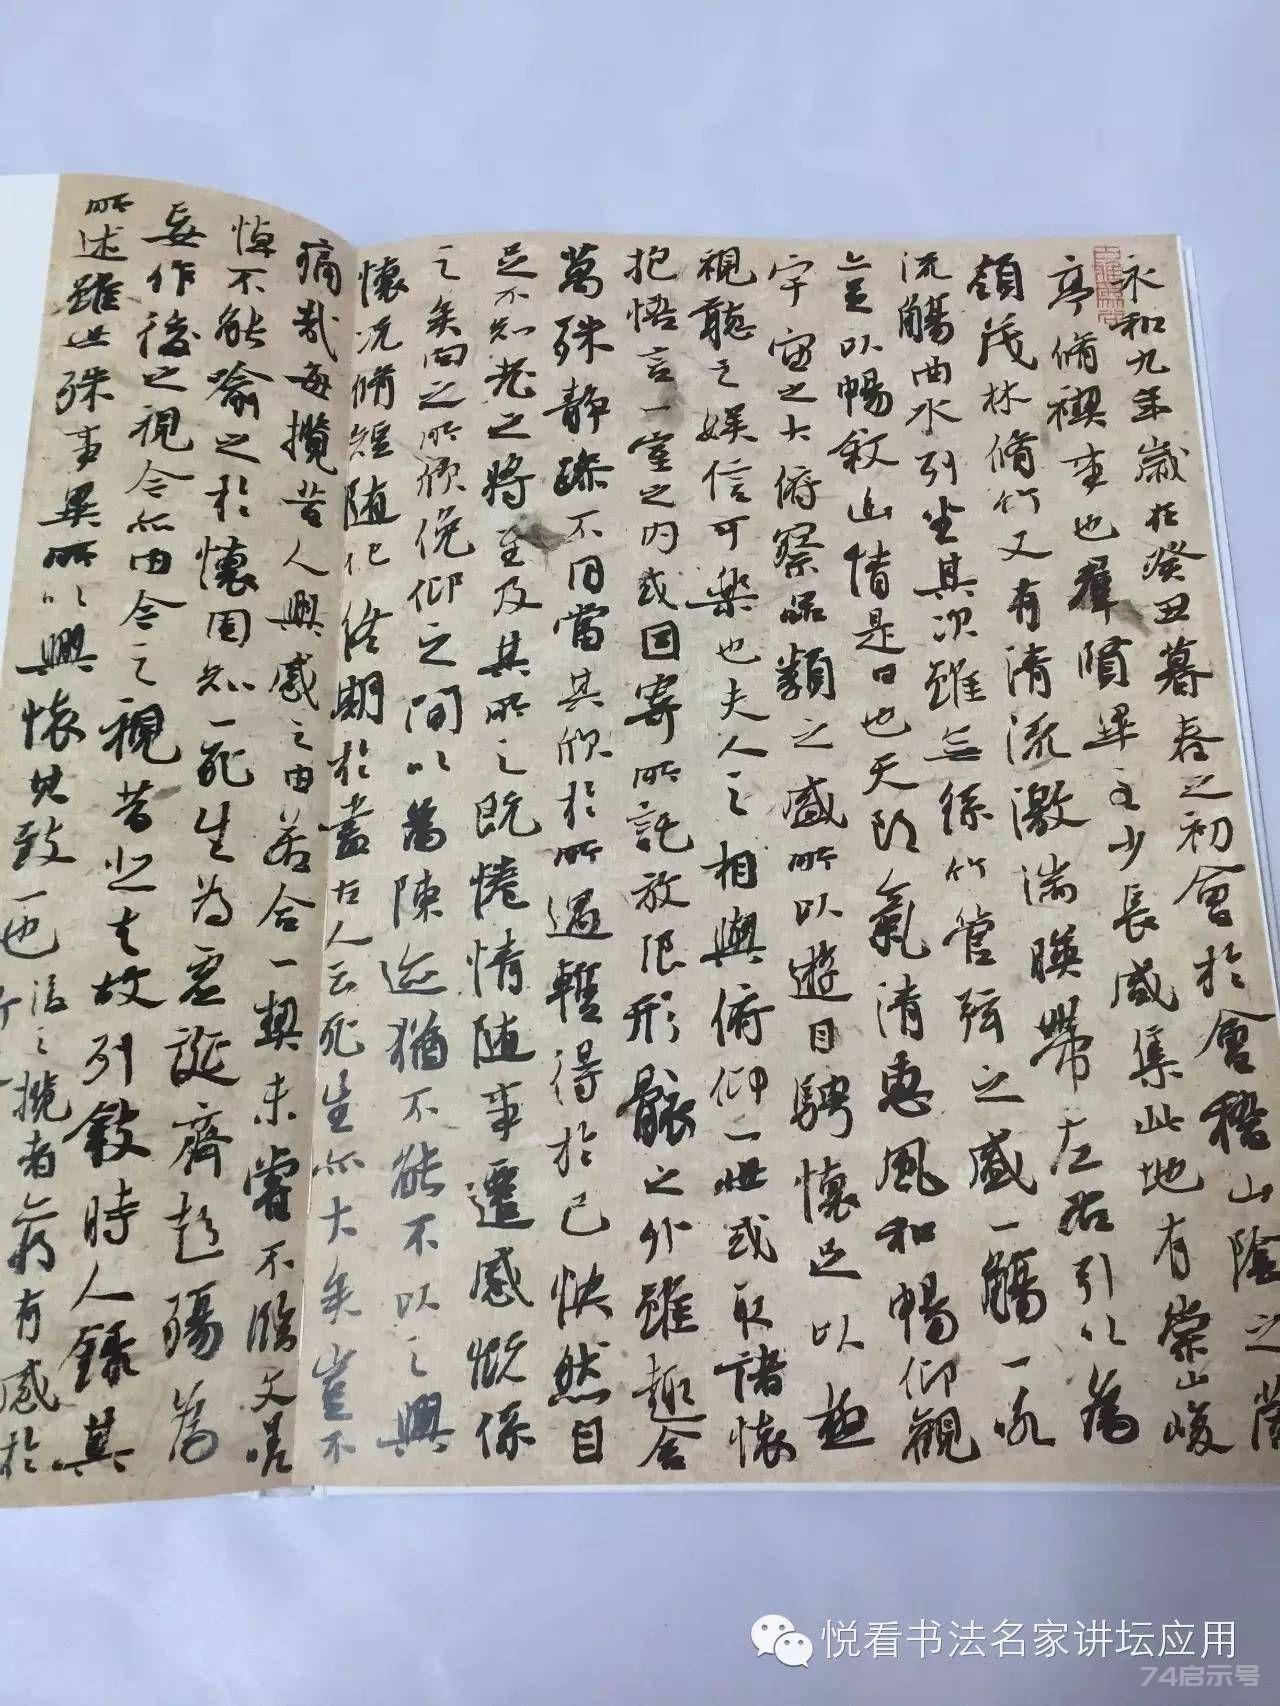 永和九年歲在癸丑暮春之初會於會稽山陰之蘭
亭脩禊事也羣賢畢至少長咸集此地有崇山峻
領茂林脩竹又有清流激湍暎帶左右引以為
流觴曲水列坐其次雖無絲竹管弦之盛一觴一詠
亦足以暢敘幽情是日也天朗氣清惠風和暢仰觀
宇宙之大俯察品類之盛所以遊目騁懷足以極
視聽之娛信可樂也夫人之相與俯仰一世或取諸懷
抱悟言一室之内或因寄所託放浪形骸之外雖趣舍
萬殊靜躁不同當其欣於所遇暫得於己快然自
足不知老之將至及其所之既惓情隨事遷感慨係
之矣向之所欣俛仰之間以為陳迹猶不能不以之興
懷況脩短隨化終期於盡古人云死生亦大矣豈不
痛哉每攬昔人興感之由若合一契未嘗不臨文嗟
悼不能喻之於懷固知一死生為虛誕齊彭殤為
妄作後之視今亦由今之視昔悲夫故列敘時人錄其
所述雖世殊事異所以興懷其致一也後之攬者亦將有感於
悦看书法名家讲坛应用
74启示号